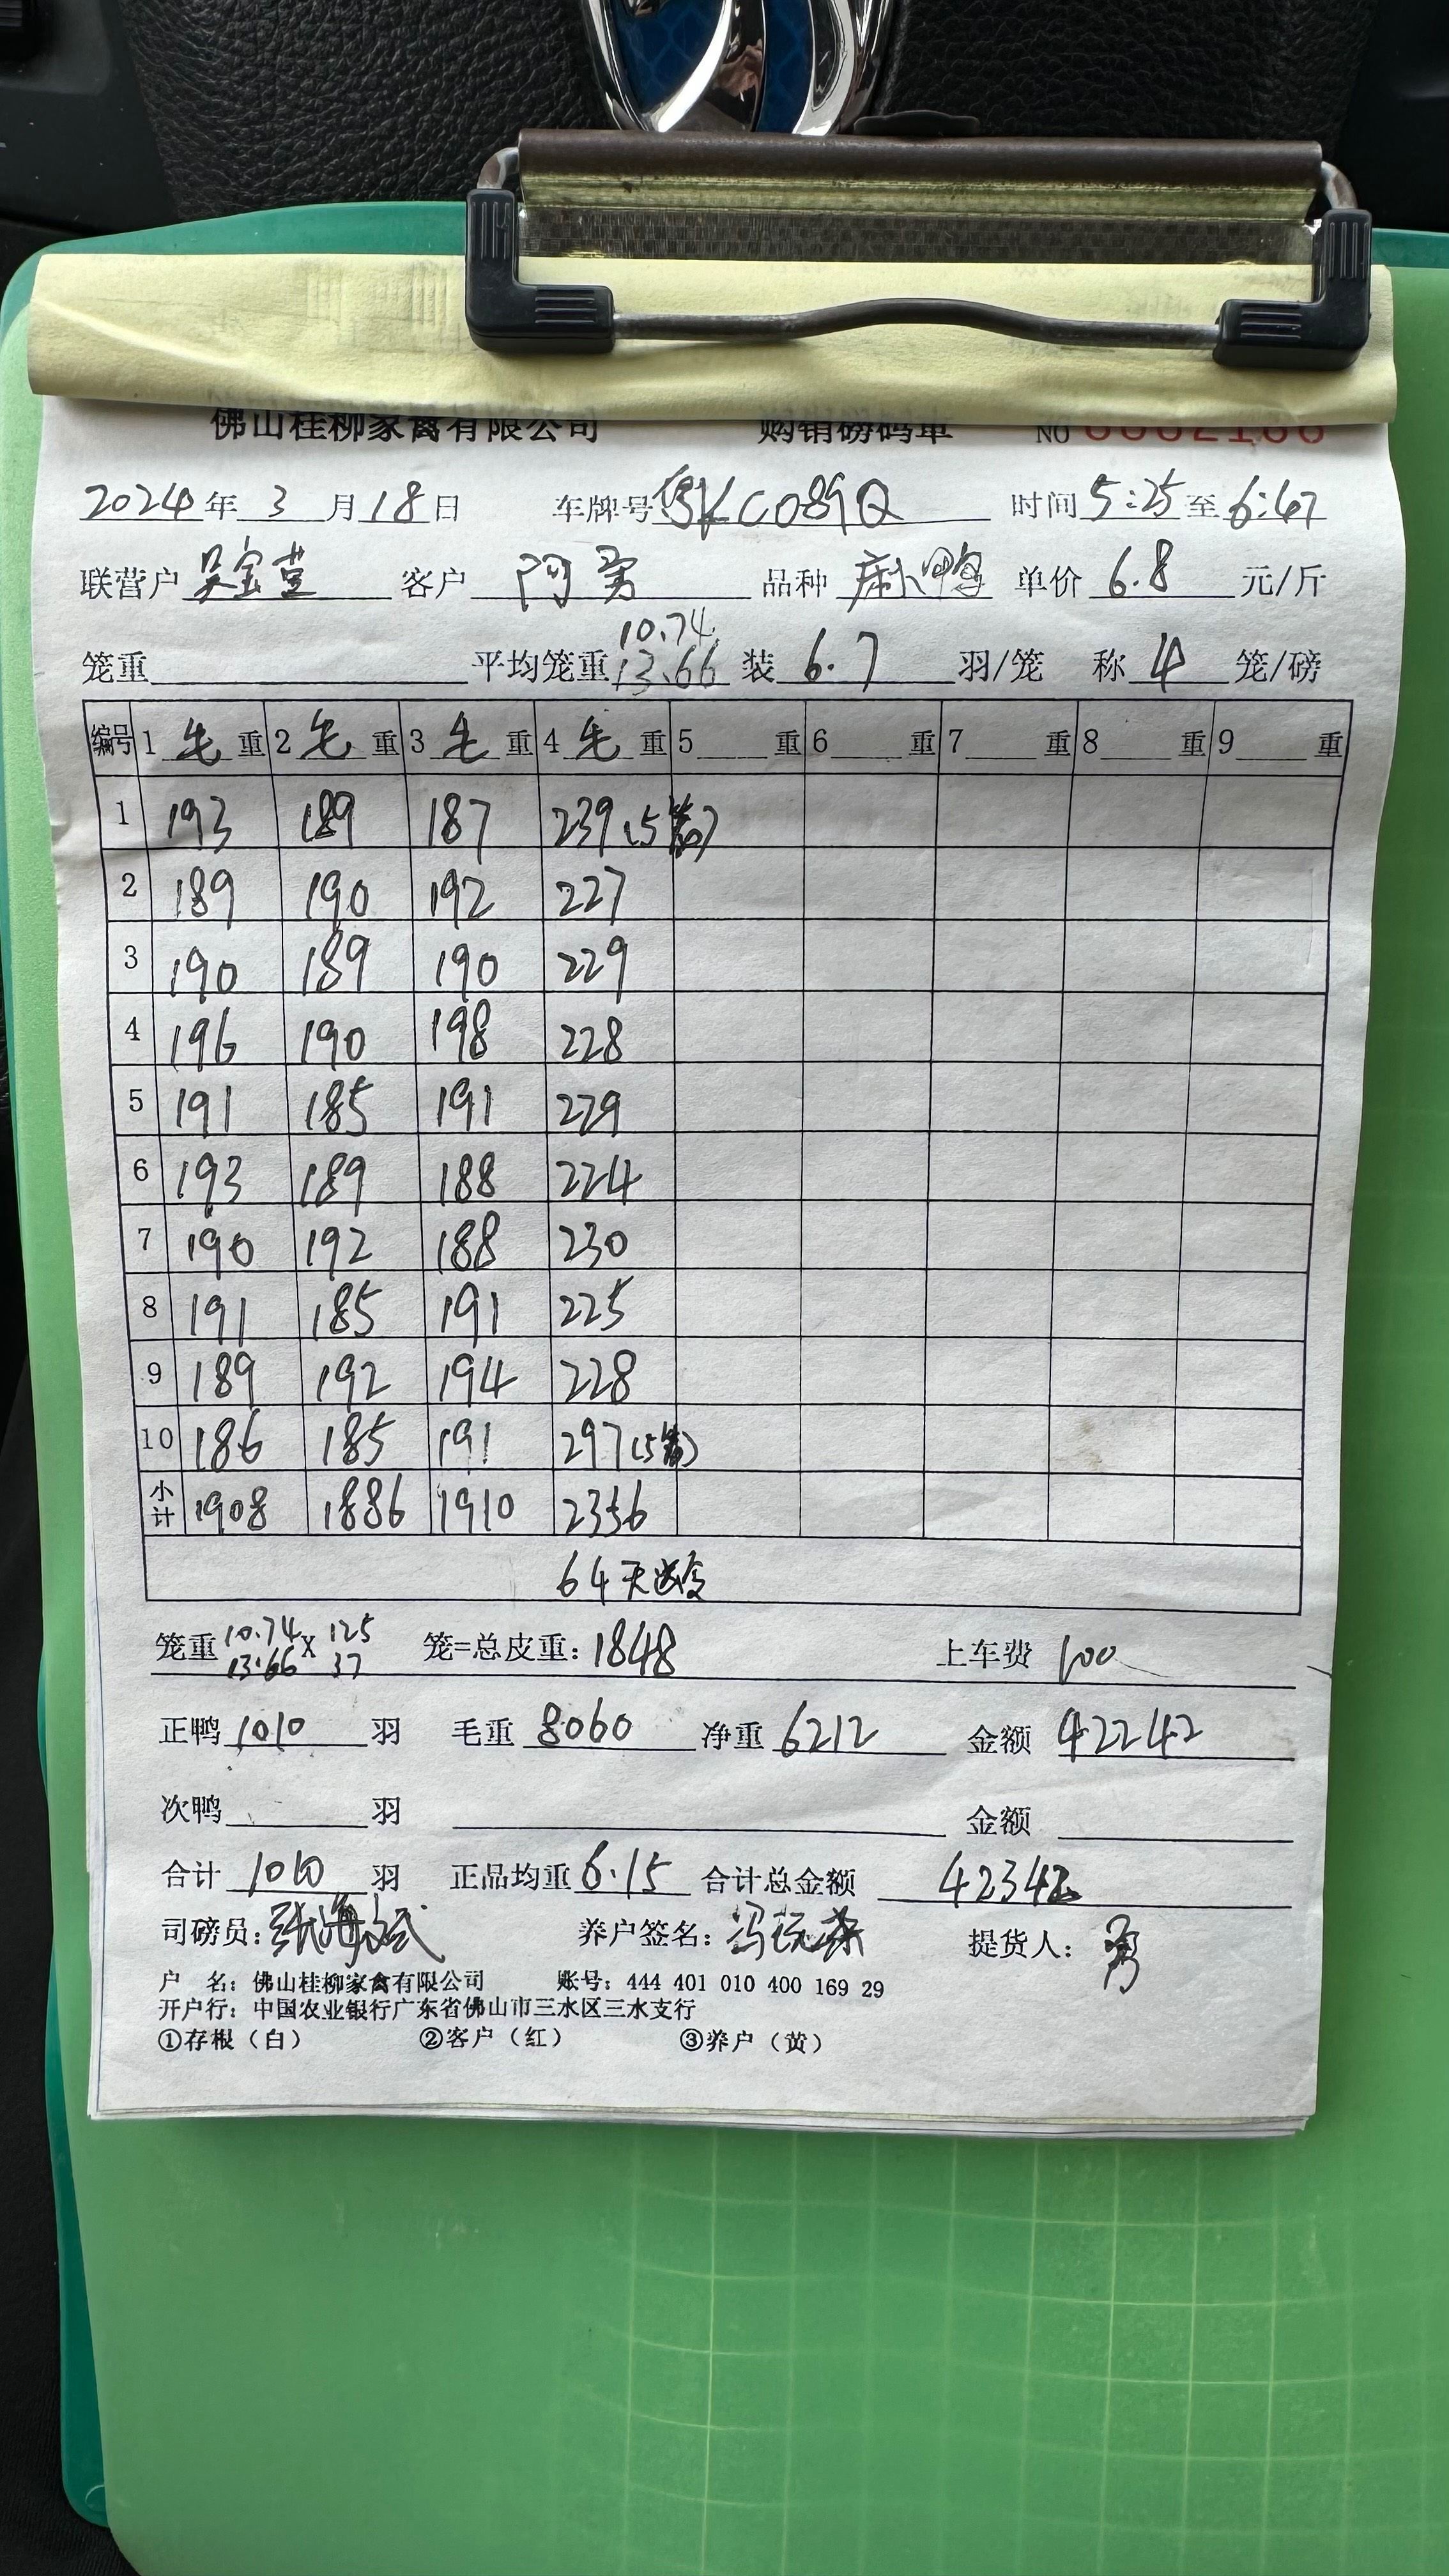 佛山桂柳家禽有限公司 购销磅码单 NO 0002166
2024年 3 月18日 车牌号 粤KC089Q 时间5:25至6:47
联营户 吴宝萱 客户 阿勇 品种 麻鸭 单价 6.8 元/斤
10.74
笼重 平均笼重13.66 装 6.7 羽/笼 称 4 笼/磅
编号 1 毛 重 2 毛 重 3 毛 重 4 毛 重 5 重 6 重 7 重 8 重 9 重
1 193 189 187 239(5笼)
2 189 190 192 227
3 190 189 190 229
4 196 190 198 228
5 191 185 191 229
6 193 189 188 224
7 190 192 188 230
8 191 185 191 225
9 189 192 194 228
10 186 185 191 297(5笼)
小计 1908 1886 1910 2356
64天
笼重 10.74 X 125 笼=总皮重:1848 上车费 100
13.66 37
正鸭 1010 羽 毛重 8060 净重 6212 金额 42242
次鸭 羽 金额
合计 1010 羽 正品均重 6.15 合计总金额 42342
司磅员:张海斌 养户签名:冯 提货人:勇
户 名:佛山桂柳家禽有限公司 账号:444 401 010 400 169 29
开户行:中国农业银行广东省佛山市三水区三水支行
①存根(白) ②客户(红) ③养户(黄)